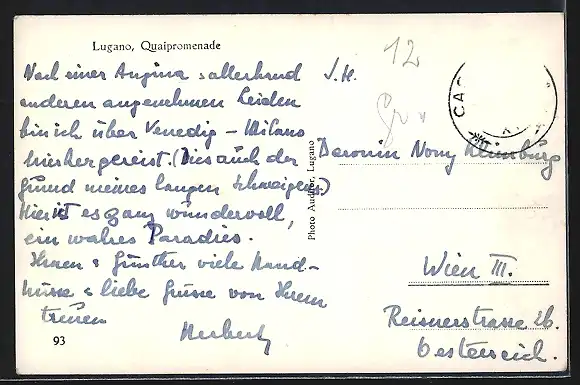 Lugano, Quaipromenade
Nach einer Angina & allerhand
anderen angenehmen Leiden
bin ich über Venedig – Milano
hierhergereist. (Dies auch der
Grund meines langen Schweigens.)
Hier ist es ganz wundervoll,
ein wahres Paradies.
Ihnen & Günther viele Hand-
küsse & liebe Grüsse von Ihrem
treuen
Herbert
93
Photo Auditor, Lugano
12
CAS
I. H.
Baronin Nony
Wien III.
Reisnerstrasse 26.
Oesterreich.